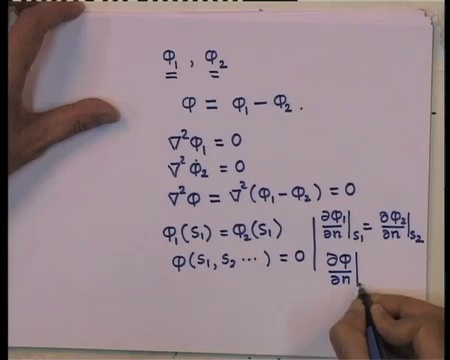 φ₁ , φ₂
φ = φ₁ − φ₂ .
∇²φ₁ = 0
∇²φ₂ = 0
∇²φ = ∇²(φ₁ − φ₂) = 0
φ₁(s₁) = φ₂(s₁) | ∂φ₁/∂n |s₁ = ∂φ₂/∂n |s₂
φ(s₁, s₂ ⋯ ) = 0 | ∂φ/∂n |